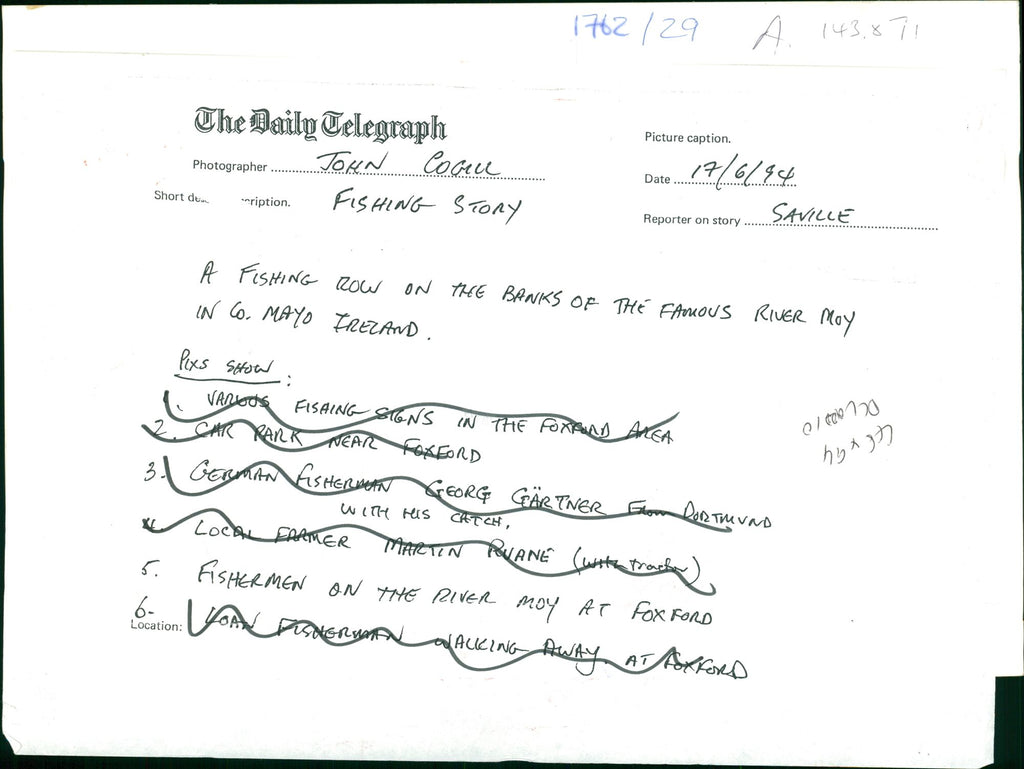 1762/29 A. 143.8 T1
The Daily Telegraph
Picture caption.
Photographer JOHN COGILL
Date 17/6/94
Short de ription. FISHING STORY
Reporter on story SAVILLE
A FISHING ROW ON THE BANKS OF THE FAMOUS RIVER MOY
IN Co. MAYO IRELAND.
PIXS SHOW :
1. VARIOUS FISHING SIGNS IN THE FOXFORD AREA
2. CAR PARK NEAR FOXFORD
3. GERMAN FISHERMAN GEORG GÄRTNER From DORTMUND
WITH HIS CATCH.
4. LOCAL FARMER MARTIN RUANE (with tractor)
5. FISHERMEN ON THE RIVER MOY AT FOXFORD
6-
Location: LOAN FISHERMAN WALKING AWAY. AT FOXFORD